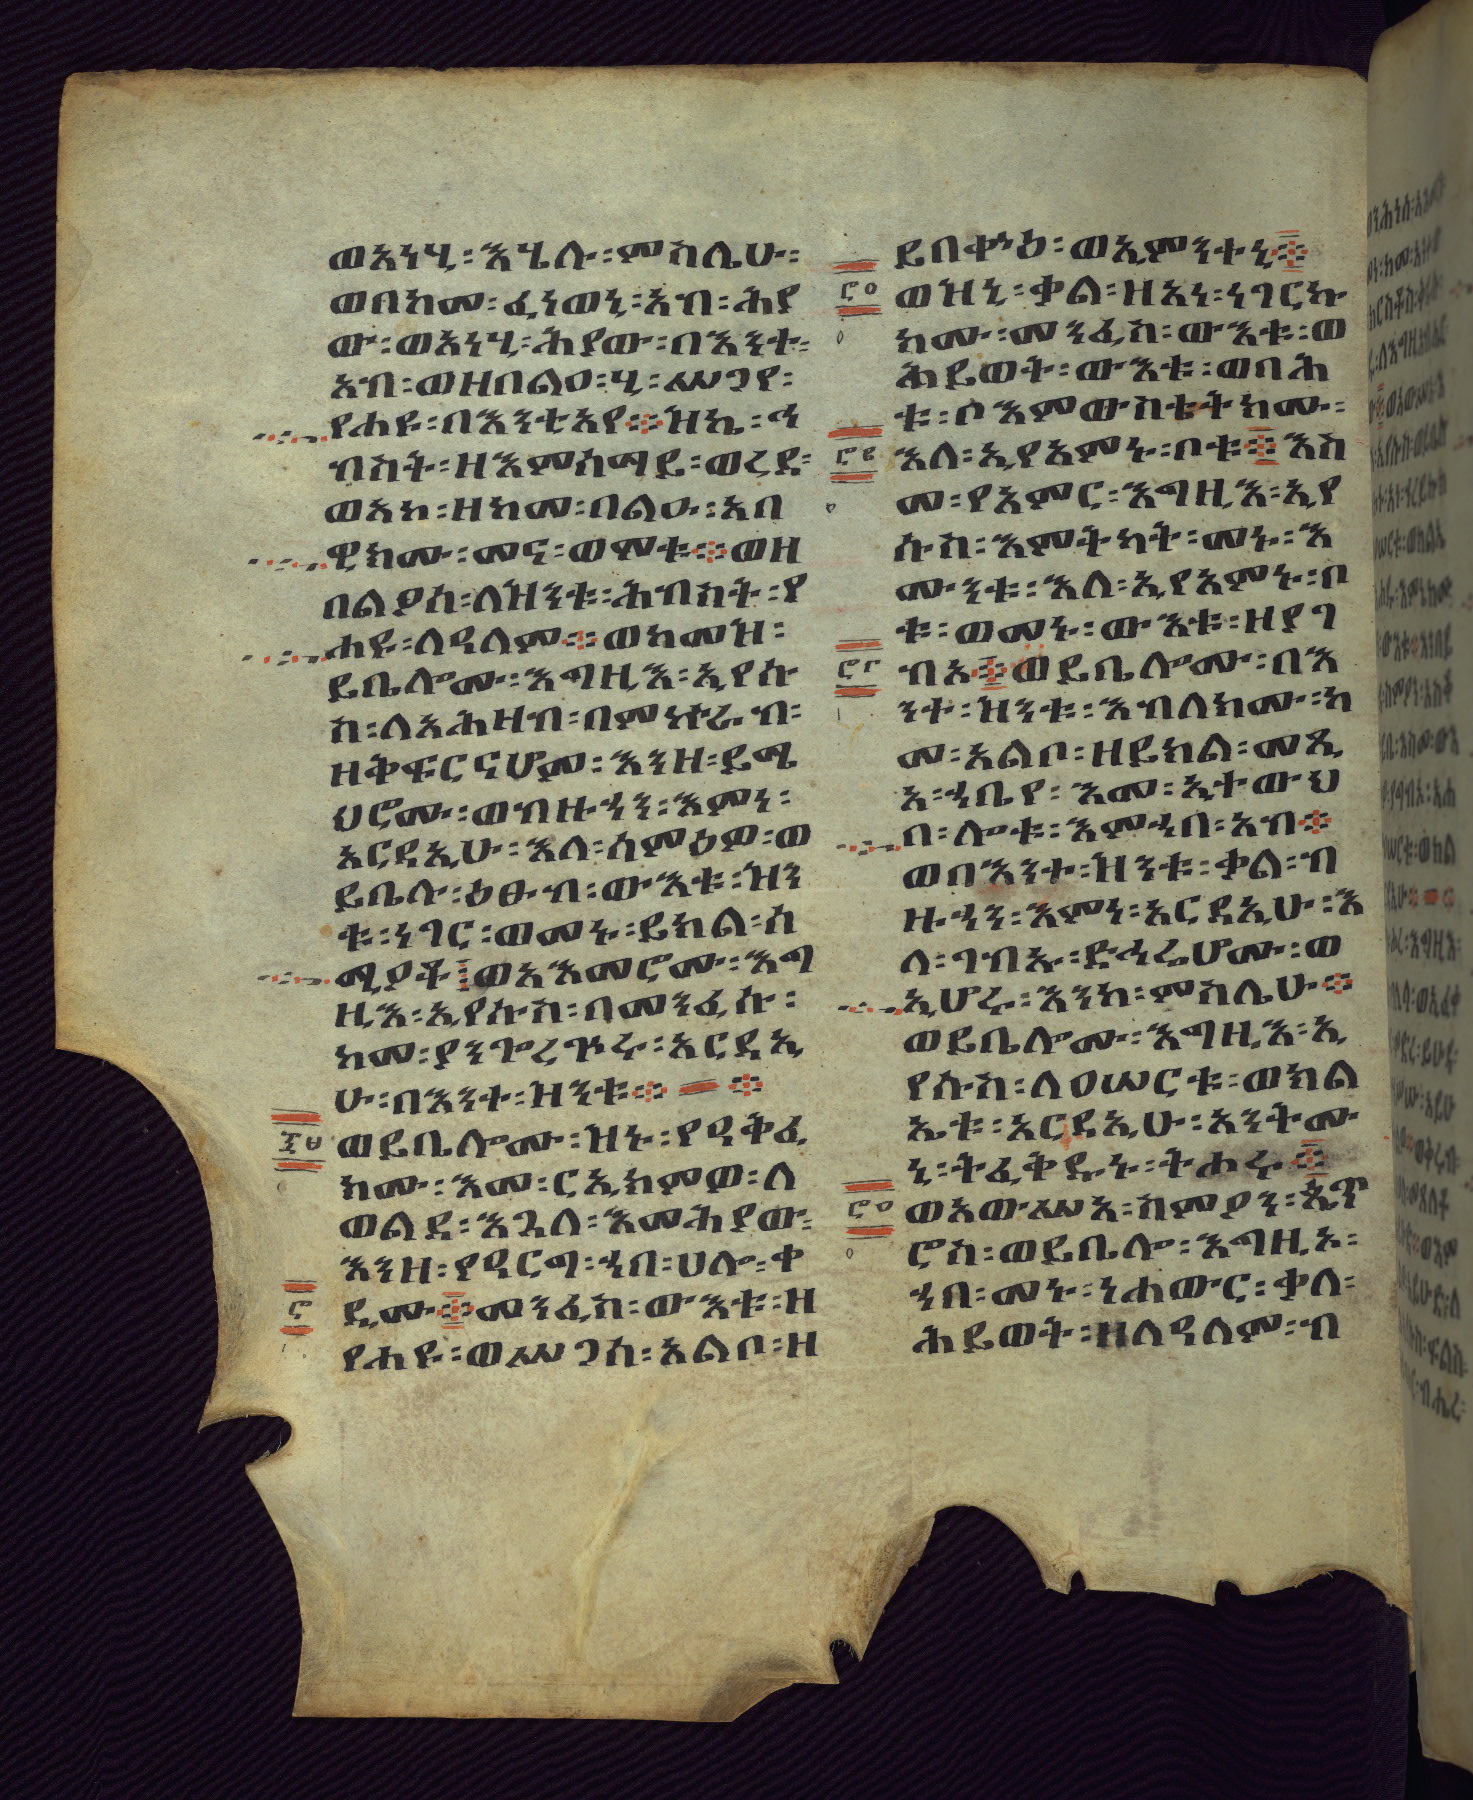 ወአነሂ፡እሄሉ፡ምስሌሁ፡
ወበከመ፡ፈነወኒ፡አብ፡ሕያ
ው፡ወአነሂ፡ሕያው፡በእንተ፡
አብ፡ወዘበልዐ፡ሂ፡ሥጋየ፡
የሐዩ፡በእንቲአየ፨ዝኬ፡ኅ
ብስት፡ዘእምሰማይ፡ወረደ፡
ወአኮ፡ዘከመ፡በልዑ፡አበ
ዊክሙ፡መና፡ወሞቱ፨ወዘ
በልዖሰ፡ለዝንቱ፡ሕብስት፡የ
ሐዩ፡ለዓለም፨ወከመዝ፡
ይቤሎሙ፡እግዚእ፡ኢየሱ
ስ፡ለአሕዛብ፡በምኵራብ፡
ዘቅፍርናሆም፡እንዘ፡ይሜ
ህሮሙ፡ወብዙኃን፡እምነ፡
አርዳኢሁ፡እለ፡ሰምዕዎ፡ወ
ይቤሉ፡ዕፁብ፡ውእቱ፡ዝን
ቱ፡ነገር፡ወመኑ፡ይክል፡ሰ
ሚዖቶ፤ወአእመሮሙ፡እግ
ዚእ፡ኢየሱስ፡በመንፈሱ፡
ከመ፡ያንጐረጕሩ፡አርዳኢ
ሁ፡በእንተ፡ዝንቱ፨ ፨
፺፱
ወይቤሎሙ፡ዝኑ፡የዓቅፈ
ክሙ፡እመ፡ርኢክምዎ፡ለ
ወልደ፡እጓለ፡እመሕያው፡
እንዘ፡የዓርግ፡ኀበ፡ሀሎ፡ቀ
ዲሙ፨መንፈስ፡ውእቱ፡ዘ
የሐዩ፡ወሥጋሰ፡አልቦ፡ዘ
ይበቍዕ፡ወኢምንተኒ፨
ወዝኒ፡ቃል፡ዘአነ፡ነገርኩ
ክሙ፡መንፈስ፡ውእቱ፡ወ
ሕይወት፡ውእቱ፡ወበሕ
ቱ፡ቦእምውስቴትክሙ፡
እለ፡ኢየአምኑ፡ቦቱ፨እስ
መ፡የአምር፡እግዚእ፡ኢየ
ሱስ፡እምትካት፡መኑ፡እ
ሙንቱ፡እለ፡ኢየአምኑ፡ቦ
ቱ፡ወመኑ፡ውእቱ፡ዘያገ
ብኦ፨ወይቤሎሙ፡በእ
ንተ፡ዝንቱ፡እብለክሙ፡ከ
መ፡አልቦ፡ዘይክል፡መጺ
አ፡ኀቤየ፡እመ፡ኢተውህ
በ፡ሎቱ፡እምኀበ፡አብ፨
ወበእንተ፡ዝንቱ፡ቃል፡ብ
ዙኃን፡እምነ፡አርዳኢሁ፡እ
ለ፡ገብኡ፡ድኅሬሆሙ፡ወ
ኢሆሩ፡እንከ፡ምስሌሁ፨
ወይቤሎሙ፡እግዚእ፡ኢ
የሱስ፡ለዐሠርቱ፡ወክል
ኤቱ፡አርዳኢሁ፡አንትሙ
ኒ፡ትፈቅዱኑ፡ትሐሩ፨
ወአውሥአ፡ስምዖን፡ጴጥ
ሮስ፡ወይቤሎ፡እግዚኦ፡
ኀበ፡መኑ፡ንሐውር፡ቃለ፡
ሕይወት፡ዘለዓለም፡ብ